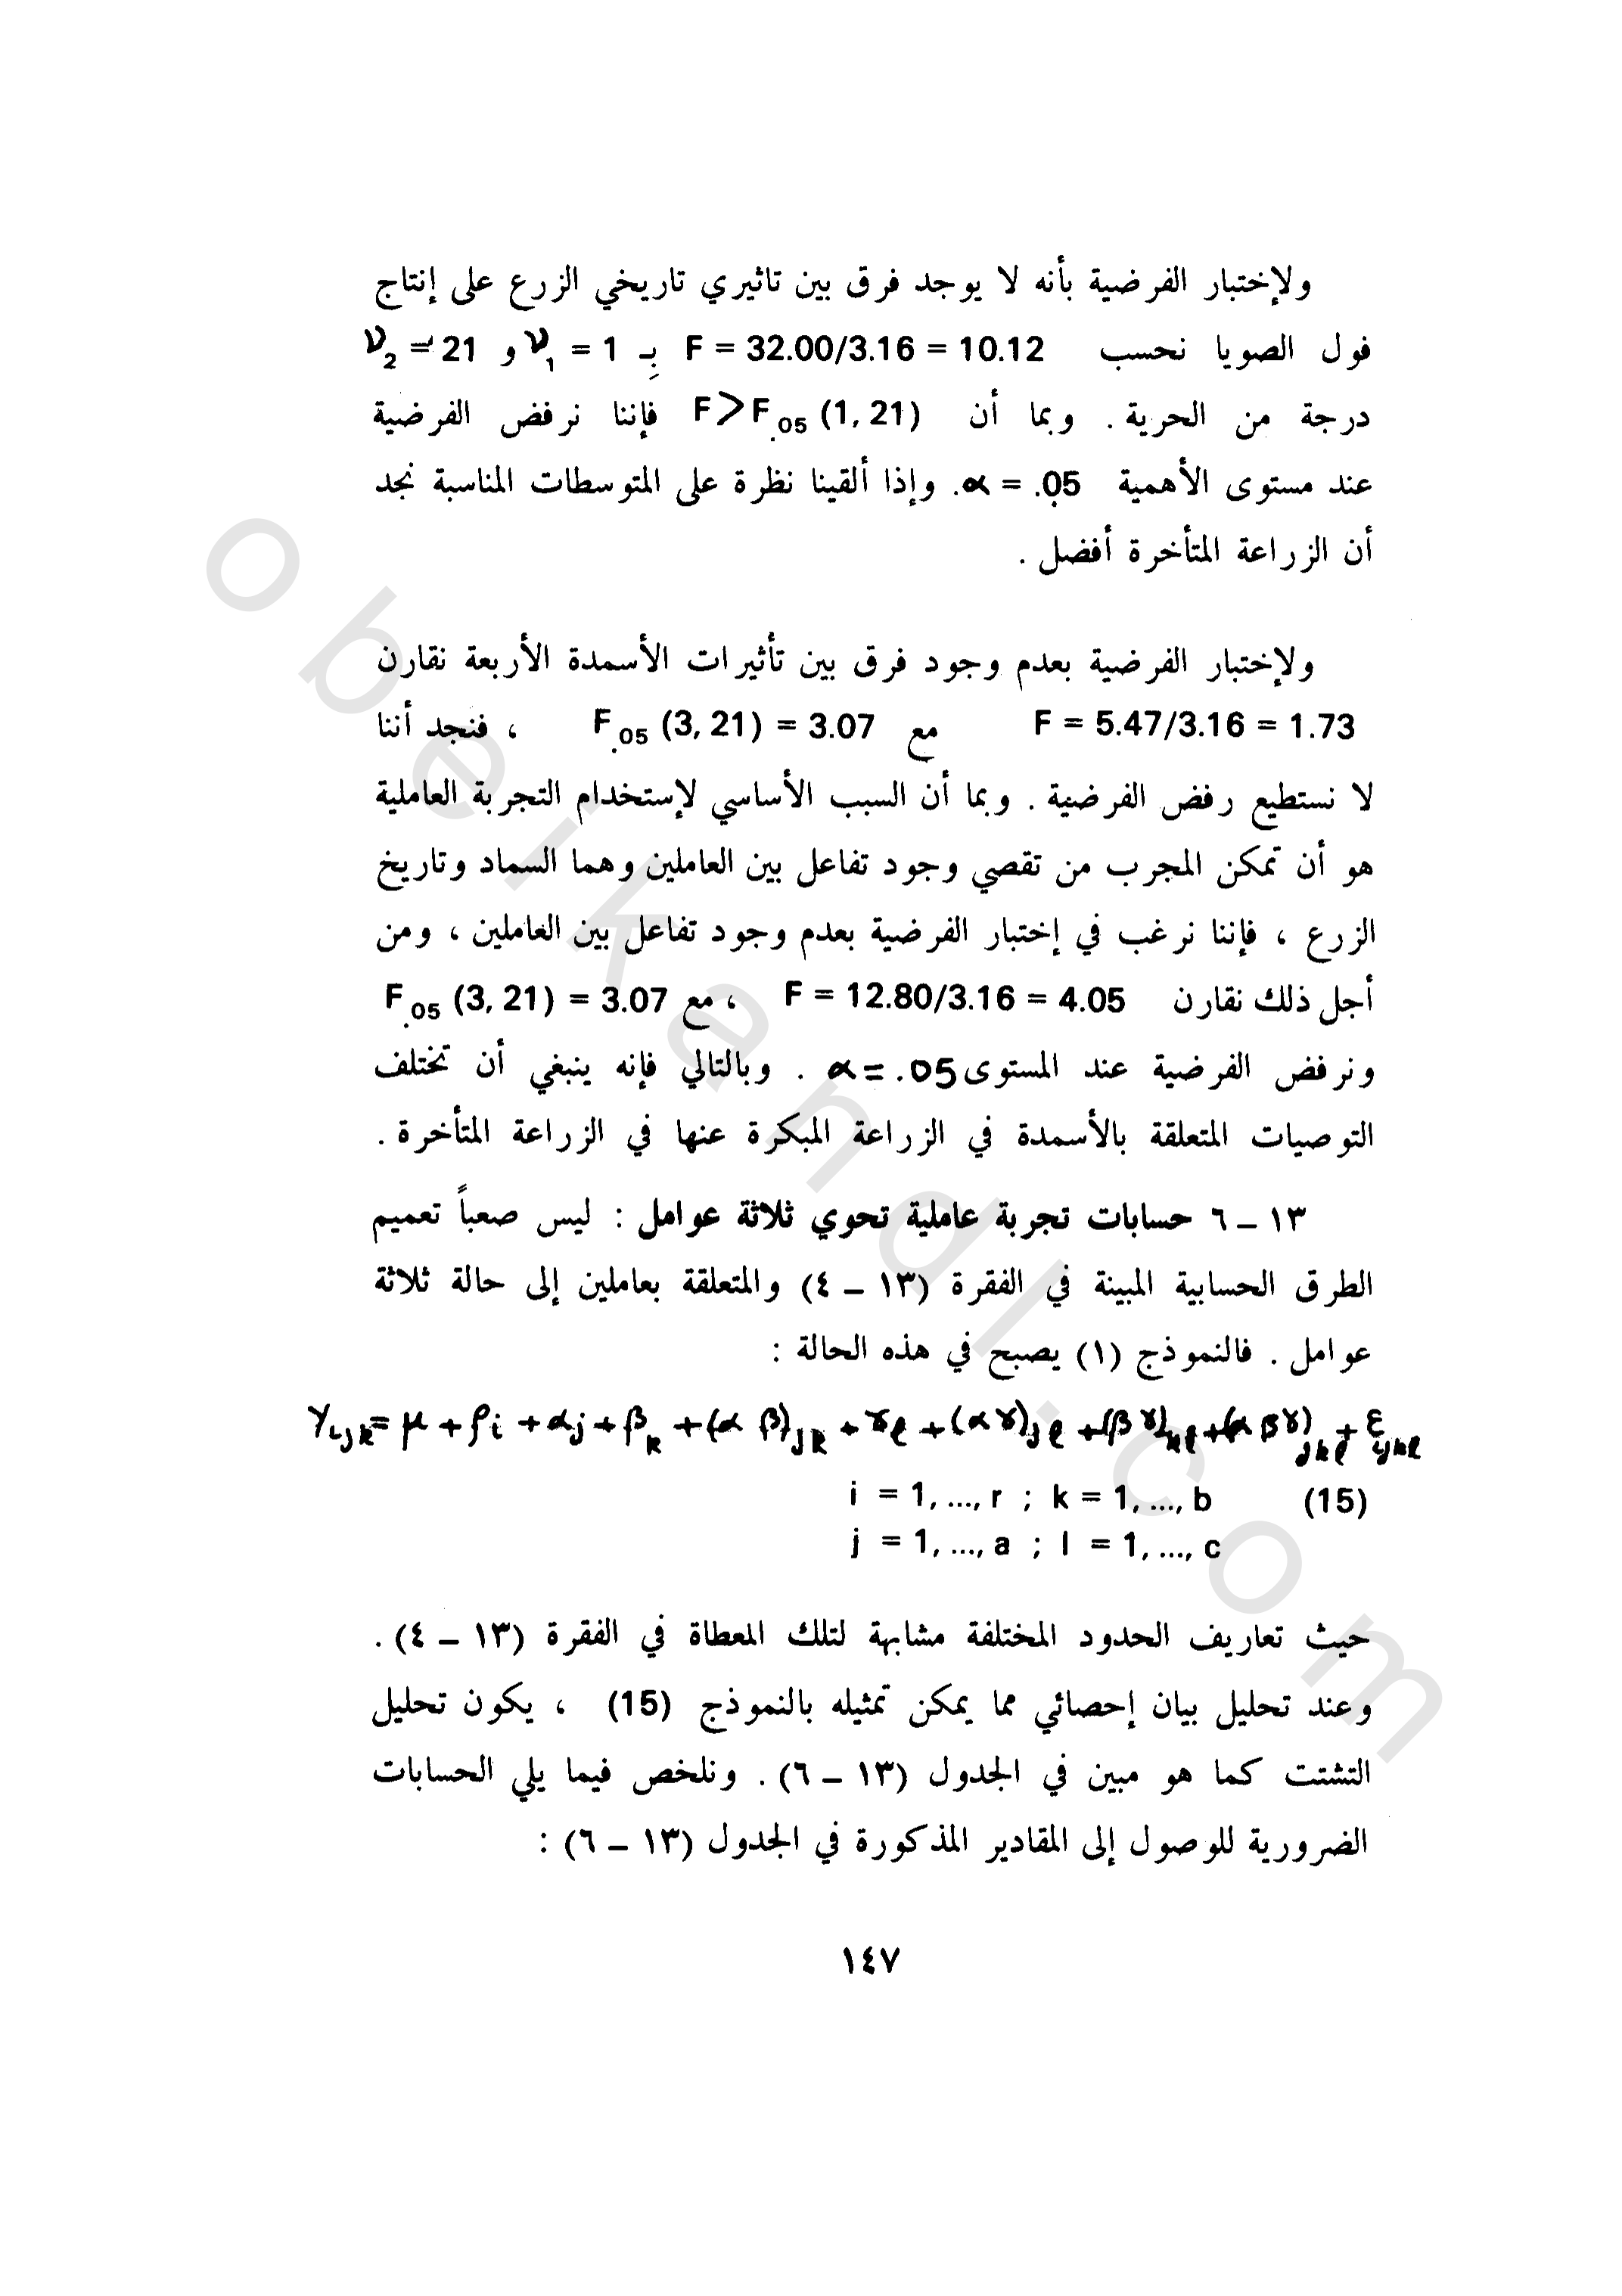 ولإختبار الفرضية بأنه لا يوجد فرق بين تاثيري تاريخي الزرع على إنتاج
فول الصويا نحسب F = 32.00/3.16 = 10.12 بِـ ν₁ = 1 و ν₂ = 21
درجة من الحرية . وبما أن F>F.₀₅ (1, 21) فإننا نرفض الفرضية
عند مستوى الأهمية α = .05. وإذا ألقينا نظرة على المتوسطات المناسبة نجد
أن الزراعة المتأخرة أفضل .
ولإختبار الفرضية بعدم وجود فرق بين تأثيرات الأسمدة الأربعة نقارن
F = 5.47/3.16 = 1.73 مع F.₀₅ (3, 21) = 3.07 ، فنجد أننا
لا نستطيع رفض الفرضية . وبما أن السبب الأساسي لإستخدام التجربة العاملية
هو أن تمكن المجرب من تقصي وجود تفاعل بين العاملين وهما السماد وتاريخ
الزرع ، فإننا نرغب في إختبار الفرضية بعدم وجود تفاعل بين العاملين ، ومن
أجل ذلك نقارن F = 12.80/3.16 = 4.05 ، مع F.₀₅ (3, 21) = 3.07
ونرفض الفرضية عند المستوى α = .05 . وبالتالي فإنه ينبغي أن تختلف
التوصيات المتعلقة بالأسمدة في الزراعة المبكرة عنها في الزراعة المتأخرة .
١٣ – ٦ حسابات تجربة عاملية تحوي ثلاثة عوامل : ليس صعباً تعميم
الطرق الحسابية المبينة في الفقرة (١٣ – ٤) والمتعلقة بعاملين إلى حالة ثلاثة
عوامل . فالنموذج (١) يصبح في هذه الحالة :
Y_ijk = μ + ρ_i + α_j + β_k + (α β)_jk + γ_ℓ + (α γ)_jℓ + (β γ)_kℓ + (α β γ)_jkℓ + ε_ijkℓ
i = 1, ..., r ; k = 1, ..., b (15)
j = 1, ..., a ; l = 1, ..., c
حيث تعاريف الحدود المختلفة مشابهة لتلك المعطاة في الفقرة (١٣ – ٤) .
وعند تحليل بيان إحصائي مما يمكن تمثيله بالنموذج (15) ، يكون تحليل
التشتت كما هو مبين في الجدول (١٣ – ٦) . ونلخص فيما يلي الحسابات
الضرورية للوصول إلى المقادير المذكورة في الجدول (١٣ – ٦) :
١٤٧
obeikandl.com